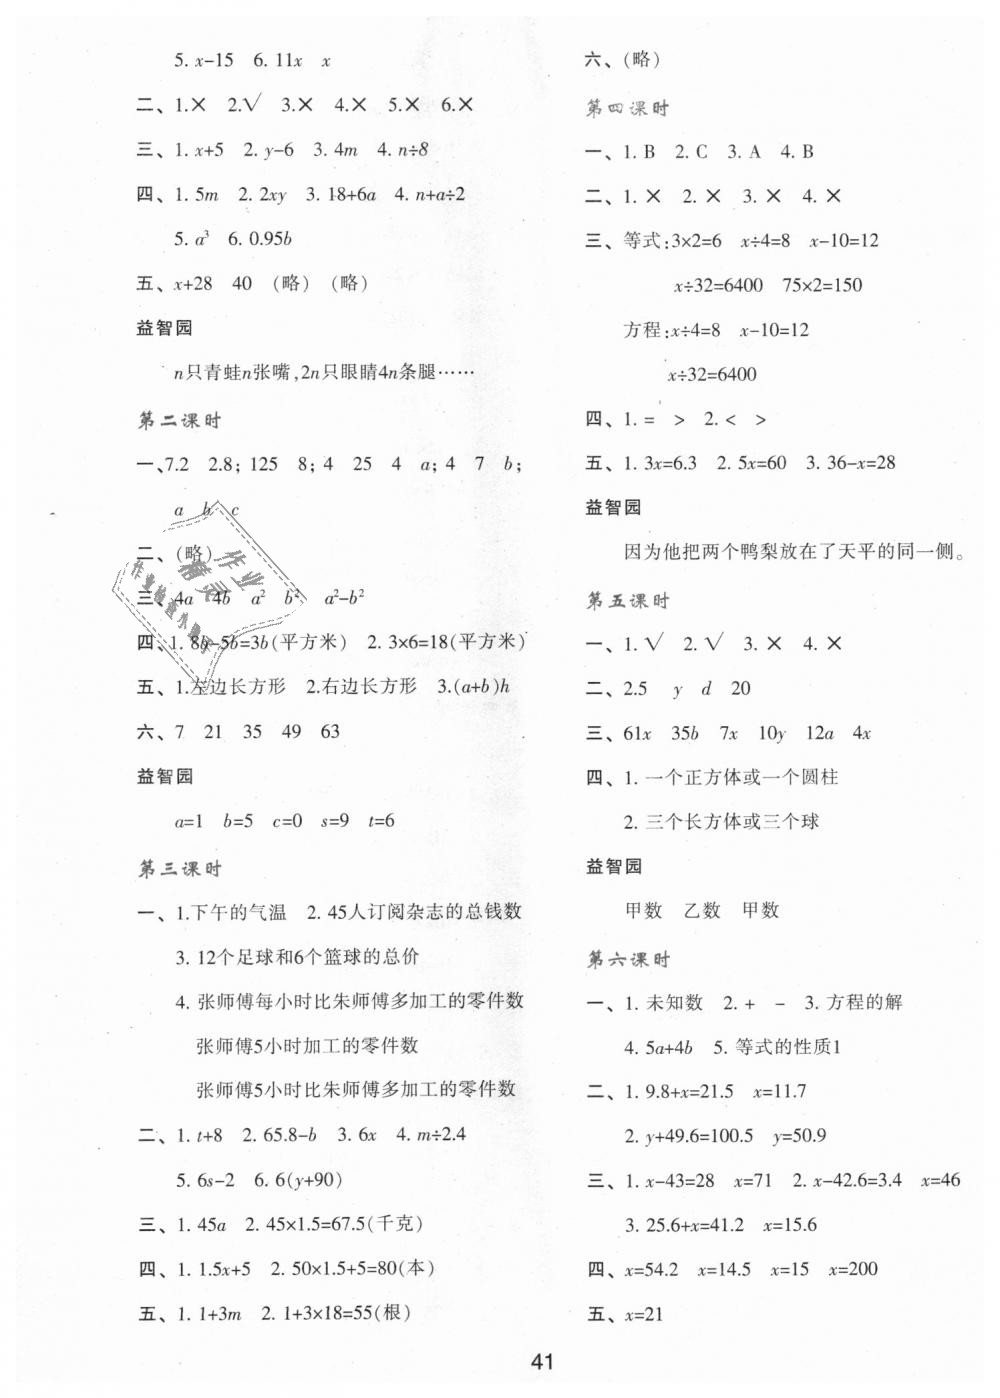 5. x-15 6. 11x x
二、1.✕ 2.√ 3.✕ 4.✕ 5.✕ 6.✕
三、1. x+5 2. y-6 3. 4m 4. n÷8
四、1. 5m 2. 2xy 3. 18+6a 4. n+a÷2
5. a³ 6. 0.95b
五、x+28 40 (略) (略)
益智园
n只青蛙n张嘴,2n只眼睛4n条腿……
第二课时
一、7.2 2.8; 125 8; 4 25 4 a; 4 7 b;
a b c
二、(略)
三、4a 4b a² b² a²-b²
四、1. 8b-5b=3b(平方米) 2. 3×6=18(平方米)
五、1.左边长方形 2.右边长方形 3.(a+b)h
六、7 21 35 49 63
益智园
a=1 b=5 c=0 s=9 t=6
第三课时
一、1.下午的气温 2. 45人订阅杂志的总钱数
3. 12个足球和6个篮球的总价
4. 张师傅每小时比朱师傅多加工的零件数
张师傅5小时加工的零件数
张师傅5小时比朱师傅多加工的零件数
二、1. t+8 2. 65.8-b 3. 6x 4. m÷2.4
5. 6s-2 6. 6(y+90)
三、1. 45a 2. 45×1.5=67.5(千克)
四、1. 1.5x+5 2. 50×1.5+5=80(本)
五、1. 1+3m 2. 1+3×18=55(根)
六、(略)
第四课时
一、1. B 2. C 3. A 4. B
二、1. ✕ 2. ✕ 3. ✕ 4. ✕
三、等式:3×2=6 x÷4=8 x-10=12
x÷32=6400 75×2=150
方程:x÷4=8 x-10=12
x÷32=6400
四、1. = > 2. < >
五、1. 3x=6.3 2. 5x=60 3. 36-x=28
益智园
因为他把两个鸭梨放在了天平的同一侧。
第五课时
一、1. √ 2. √ 3. ✕ 4. ✕
二、2.5 y d 20
三、61x 35b 7x 10y 12a 4x
四、1. 一个正方体或一个圆柱
2. 三个长方体或三个球
益智园
甲数 乙数 甲数
第六课时
一、1. 未知数 2. + - 3. 方程的解
4. 5a+4b 5. 等式的性质1
二、1. 9.8+x=21.5 x=11.7
2. y+49.6=100.5 y=50.9
三、1. x-43=28 x=71 2. x-42.6=3.4 x=46
3. 25.6+x=41.2 x=15.6
四、x=54.2 x=14.5 x=15 x=200
五、x=21
41
作业
精灵